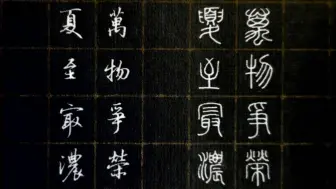 萬物爭榮
夏至最濃
萬物爭榮
夏至冣濃